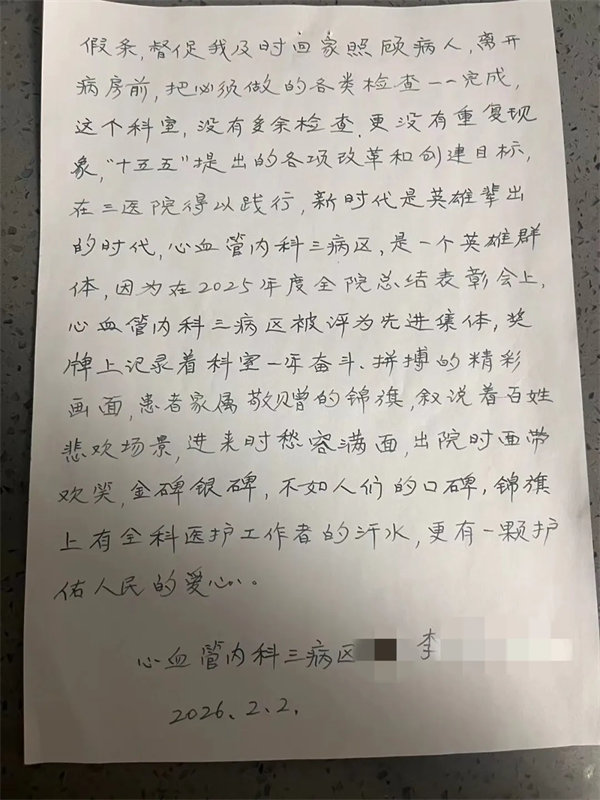 假条,督促我及时回家照顾病人,离开
病房前,把必须做的各类检查一一完成,
这个科室,没有多余检查,更没有重复现
象,"十五五"提出的各项改革和创建目标,
在三医院得以践行,新时代是英雄辈出
的时代,心血管内科三病区,是一个英雄群
体,因为在2025年度全院总结表彰会上,
心血管内科三病区被评为先进集体,奖
牌上记录着科室一年奋斗、拼搏的精彩
画面,患者家属敬赠的锦旗,叙说着百姓
悲欢场景,进来时愁容满面,出院时面带
欢笑,金碑银碑,不如人们的口碑,锦旗
上有全科医护工作者的汗水,更有一颗护
佑人民的爱心。
心血管内科三病区 李
2026.2.2.